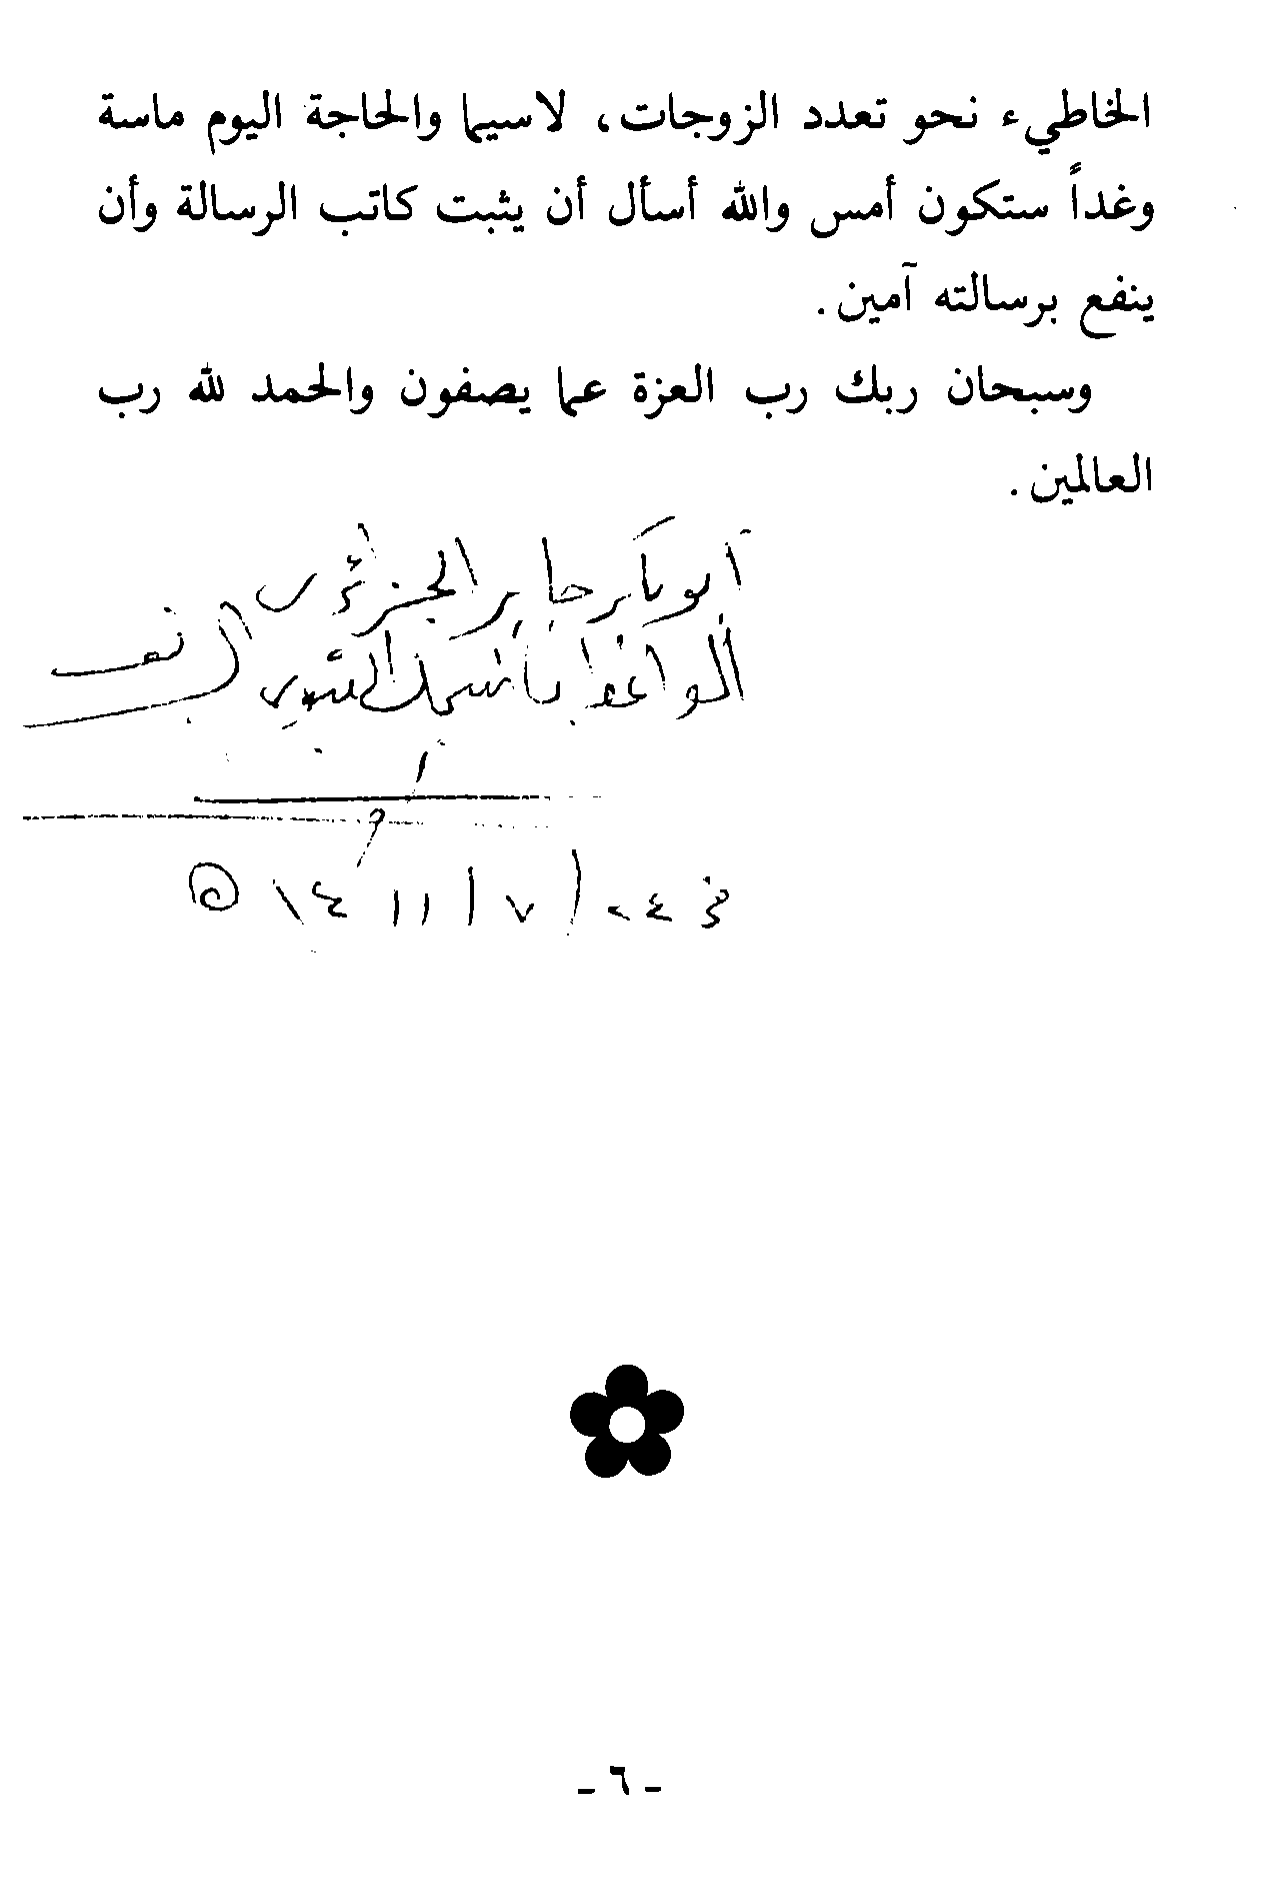 الخاطيء نحو تعدد الزوجات، لاسيما والحاجة اليوم ماسة
وغداً ستكون أمس والله أسأل أن يثبت كاتب الرسالة وأن
ينفع برسالته آمين.
وسبحان ربك رب العزة عما يصفون والحمد لله رب
العالمين.
أبو بكر جابر الجزائري
الواعظ بالمسجد النبوي الشريف
في ٢٤ / ٧ / ١٤١١ ه
- ٦ -